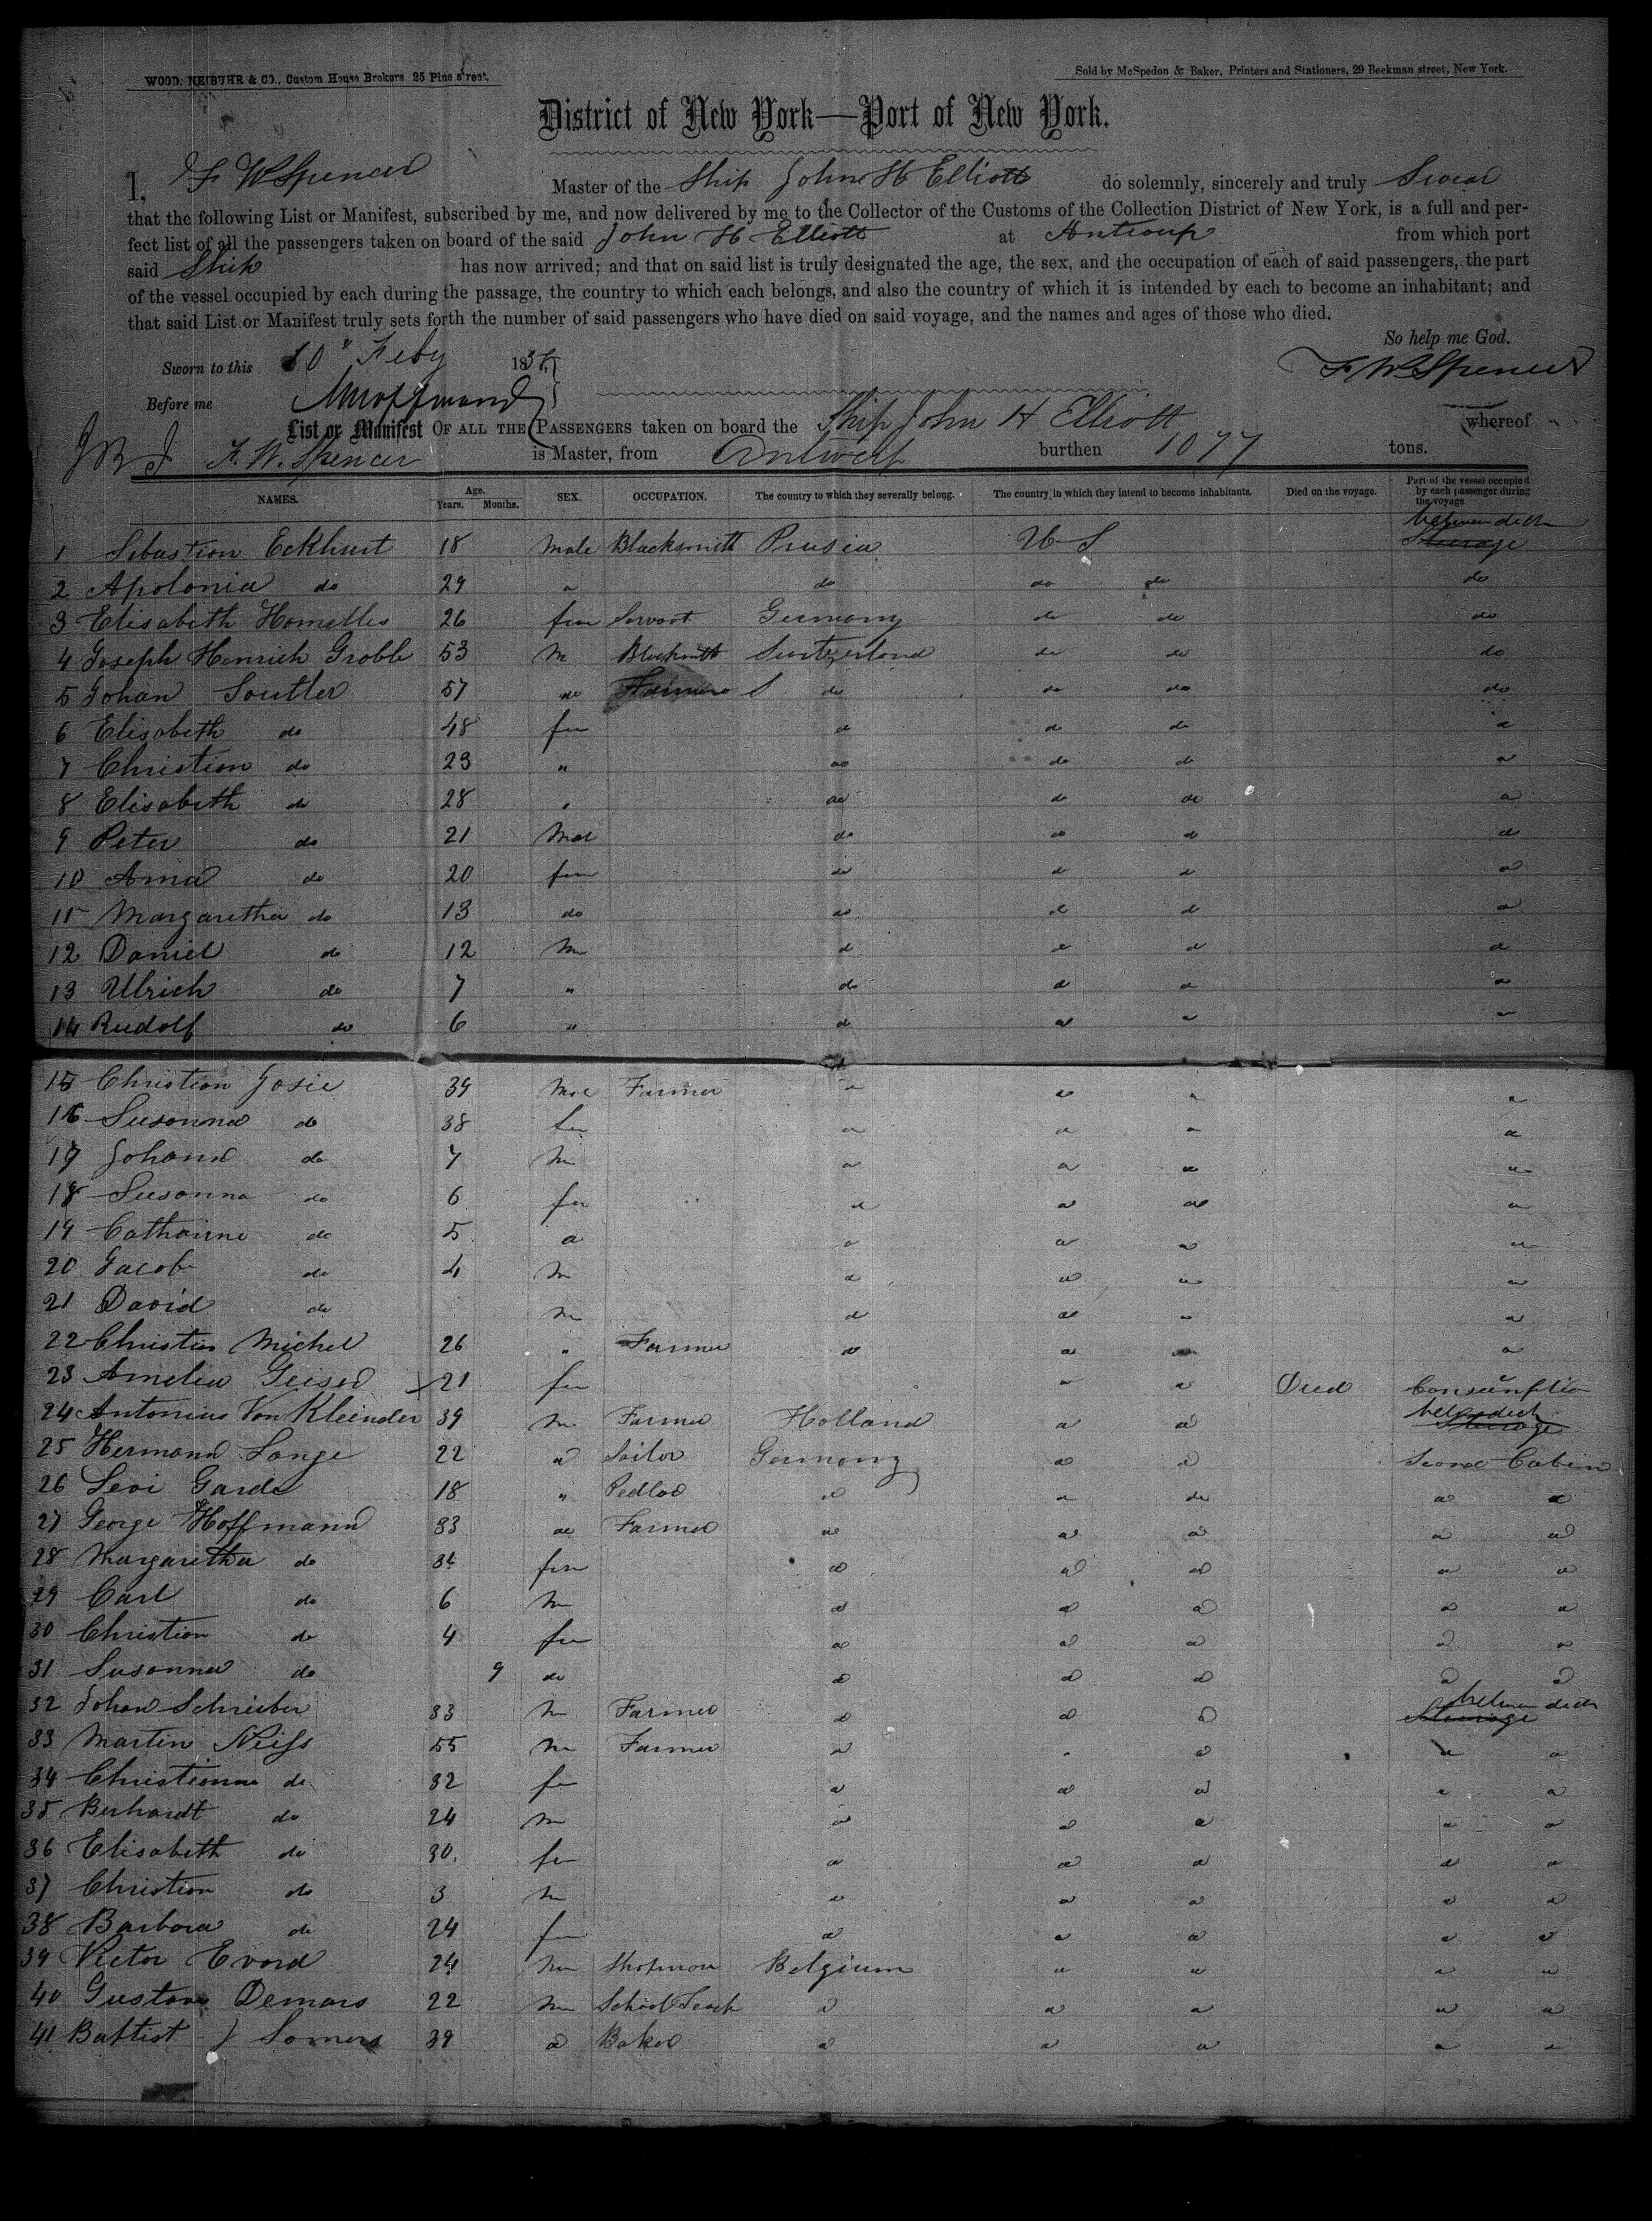 WOOD, NEIBUHR & CO., Custom House Brokers, 25 Pine street.
Sold by McSpedon & Baker, Printers and Stationers, 29 Beekman street, New York.
District of New York—Port of New York.
I, F W Spencer Master of the Ship John H Elliott do solemnly, sincerely and truly Swear
that the following List or Manifest, subscribed by me, and now delivered by me to the Collector of the Customs of the Collection District of New York, is a full and per-
fect list of all the passengers taken on board of the said John H Elliott at Antwerp from which port
said Ship has now arrived; and that on said list is truly designated the age, the sex, and the occupation of each of said passengers, the part
of the vessel occupied by each during the passage, the country to which each belongs, and also the country of which it is intended by each to become an inhabitant; and
that said List or Manifest truly sets forth the number of said passengers who have died on said voyage, and the names and ages of those who died.
So help me God.
Sworn to this 10" Feby 185 F W Spencer
Before me
List or Manifest OF ALL THE PASSENGERS taken on board the Ship John H Elliott whereof
F. W. Spencer is Master, from Antwerp burthen 1077 tons.
NAMES. Age. Years. Months. SEX. OCCUPATION. The country to which they severally belong. The country in which they intend to become inhabitants. Died on the voyage. Part of the vessel occupied by each passenger during the voyage.
1 Sebastion Eckhurt 18 Male Blacksmith Prusia U S between deck Steerage
2 Apolonia do 29 " do do do do
3 Elisabeth Homelles 26 fem Servant Germany do do do
4 Joseph Henrich Grobb 53 m Blacksmith Switzerland do do do
5 Johan Soutter 57 do Farmer S do do do do
6 Elisabeth do 48 fem do do do do
7 Christion do 23 " do do do do
8 Elisabeth do 28 " do do do do
9 Peter do 21 Mal do do do do
10 Anna do 20 fem do do do do
11 Margaretha do 13 do do do do do
12 Daniel do 12 m do do do do
13 Ulrich do 7 " do do do do
14 Rudolf do 6 " do do do do
15 Christion Josie 39 Mal Farmer do do do do
16 Susonna do 38 fem do do do do
17 Johann do 7 m do do do do
18 Susonna do 6 fem do do do do
19 Catharine do 5 do do do do do
20 Jacob do 4 m do do do do
21 David do m do do do do
22 Christian Michel 26 " Farmer do do do do
23 Amelia Geiser 21 fem do do Died Consumption
24 Antonius Von Kleinder 39 m Farmer Holland do do between deck Steerage
25 Hermann Lange 22 do Sailor Germany do do Second Cabin
26 Levi Garde 18 " Pedlar do do do do do
27 George Hoffmann 33 do Farmer do do do do do
28 Margaretha do 34 fem do do do do do
29 Carl do 6 m do do do do do
30 Christion do 4 fem do do do do do
31 Susanna do 9 do do do do do do
32 Johan Schreiber 33 m Farmer do do do between deck Steerage
33 Martin Neiss 55 m Farmer do do do do do
34 Christiana do 32 fem do do do do do
35 Berhardt do 24 m do do do do do
36 Elisabeth do 30 fem do do do do do
37 Christion do 3 m do do do do do
38 Barbara do 24 fem do do do do do
39 Victor Evord 24 m Shopman Belgium do do do do
40 Gustave Demars 22 m School Teach do do do do do
41 Baptist J Somers 39 do Baker do do do do do